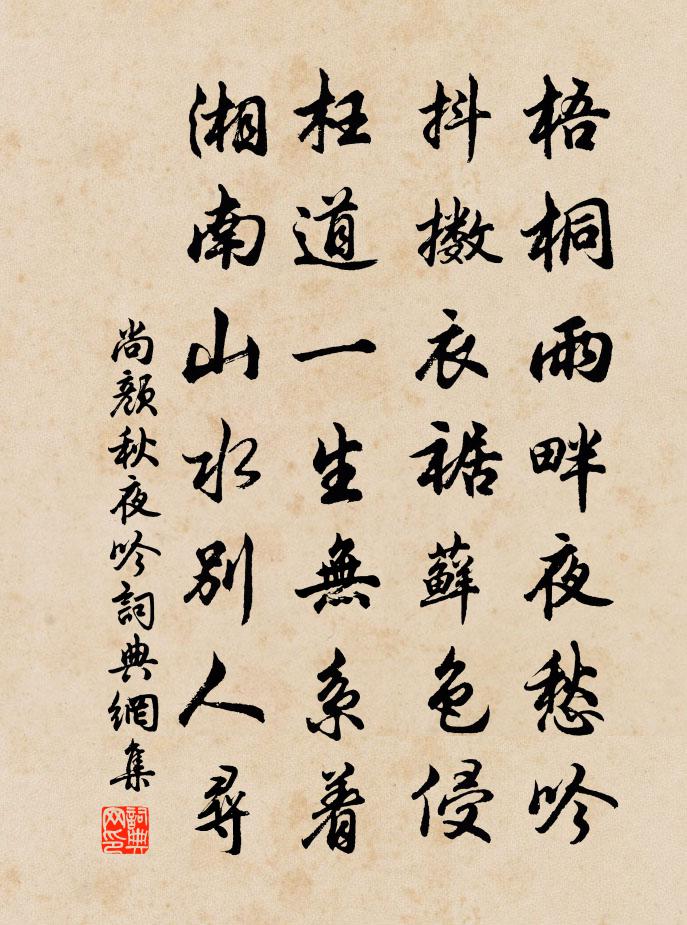 梧桐雨畔夜愁吟
抖擞衣裾藓色侵
枉道一生無系着
湘南山水别人尋
尚顏秋夜吟詞典網集
詞典网印